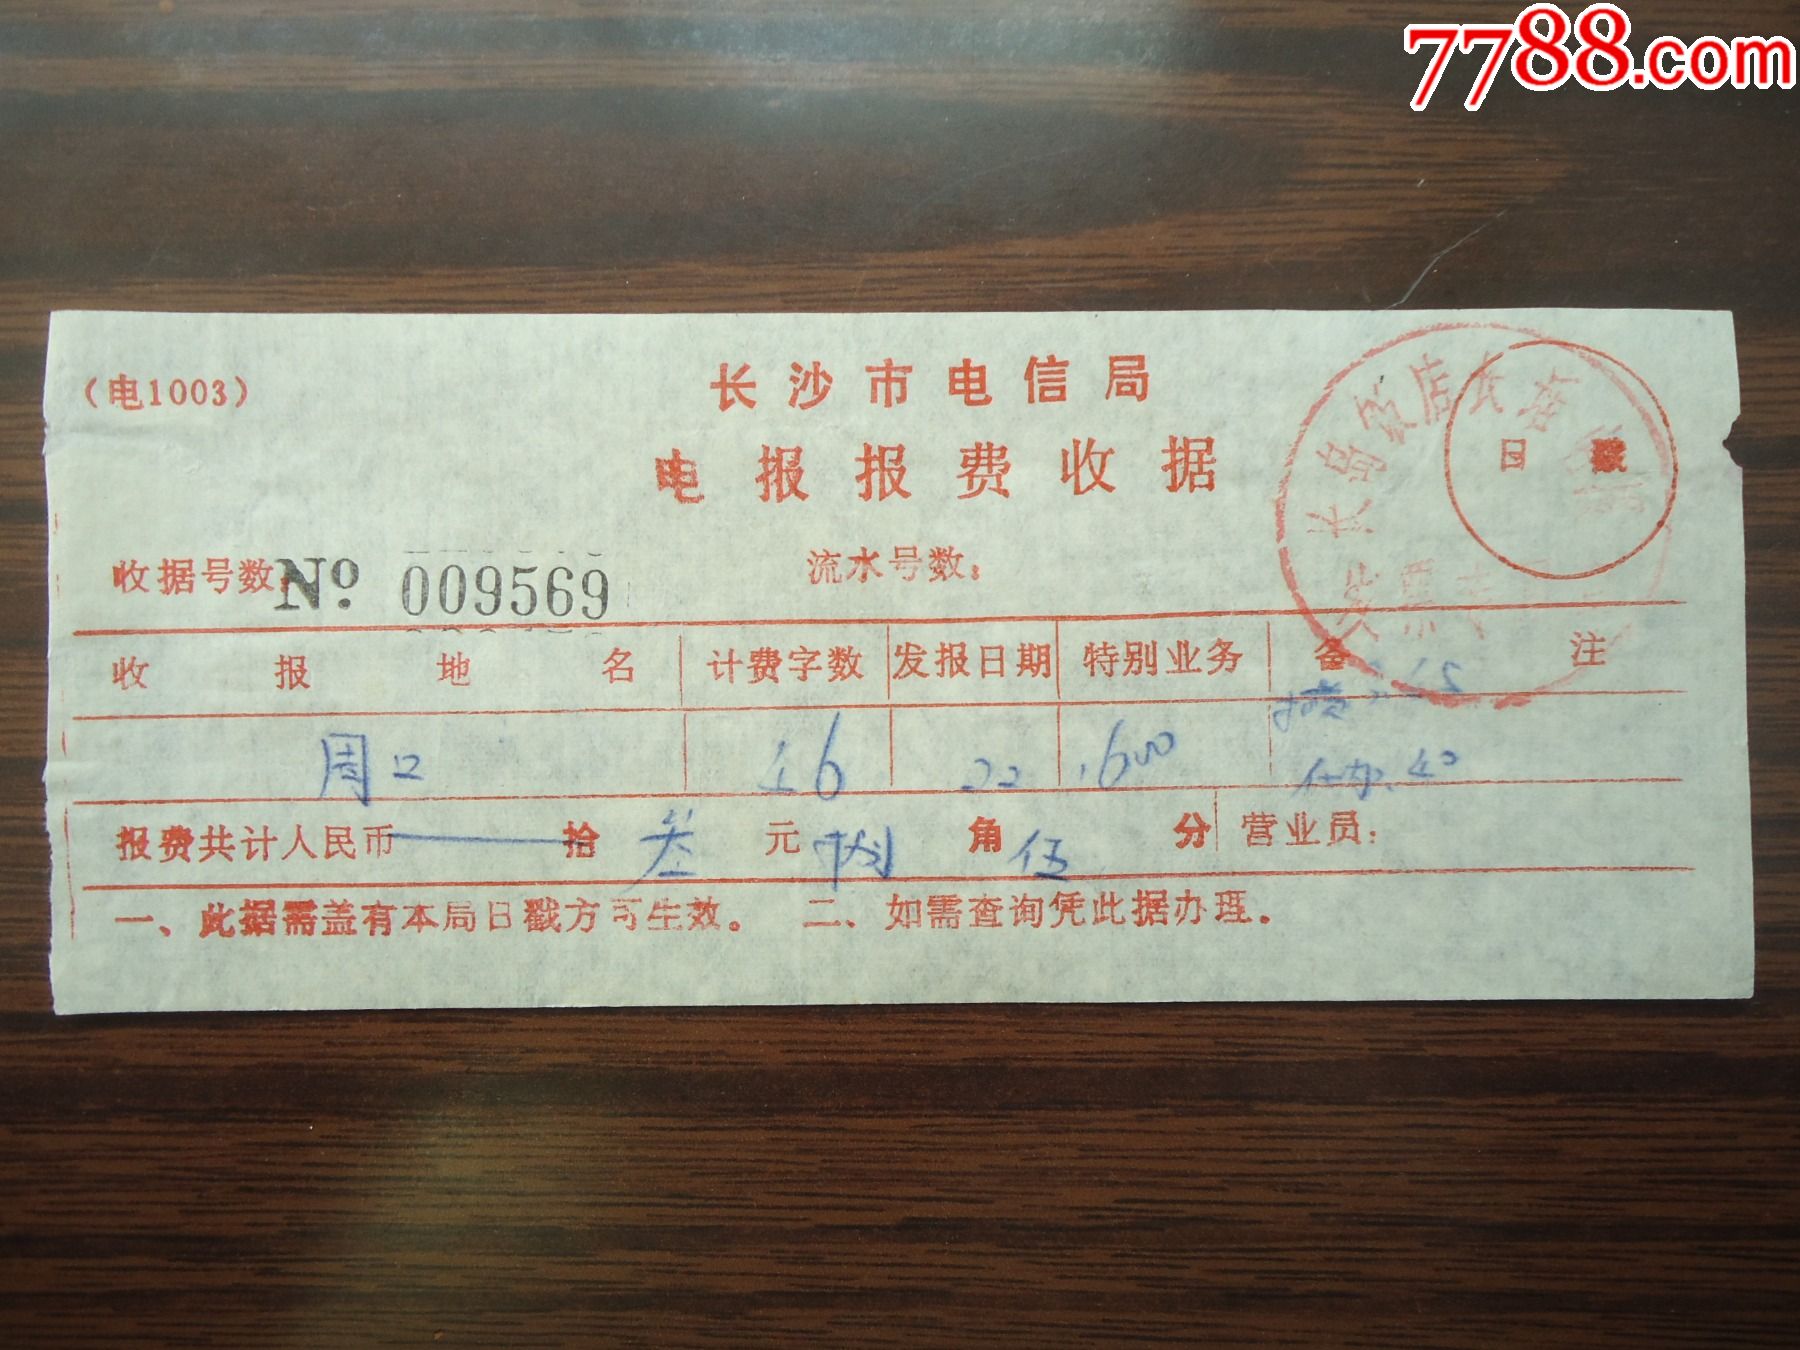 7788.com
(电1003)
长沙市电信局
电报报费收据
日戳
收据号数: No 009569 流水号数:
收报地名 计费字数 发报日期 特别业务 备注
周口 46 22 1600
.40
报费共计人民币 拾 叁 元 捌 角 伍 分 营业员:
一、此据需盖有本局日戳方可生效。 二、如需查询凭此据办理.